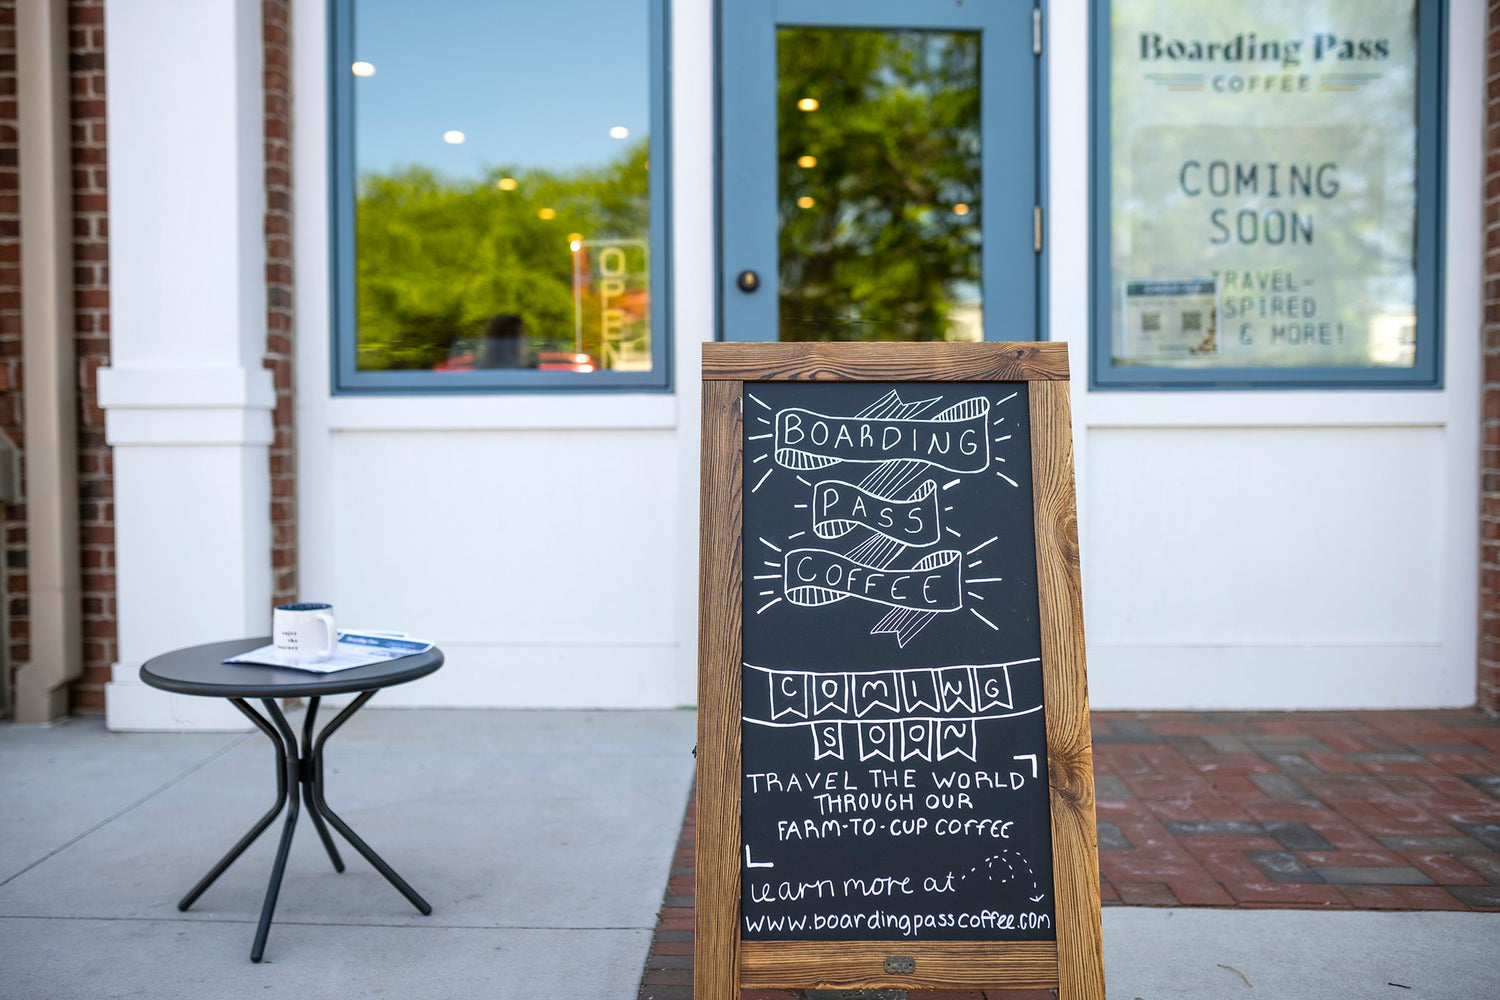 Boarding Pass
COFFEE
COMING
SOON
TRAVEL-
SPIRED
& MORE!
OPEN
BOARDING
PASS
COFFEE
COMING
SOON
TRAVEL THE WORLD
THROUGH OUR
FARM-TO-CUP COFFEE
learn more at
www.boardingpasscoffee.com
enjoy
the
journey
Boarding Pass